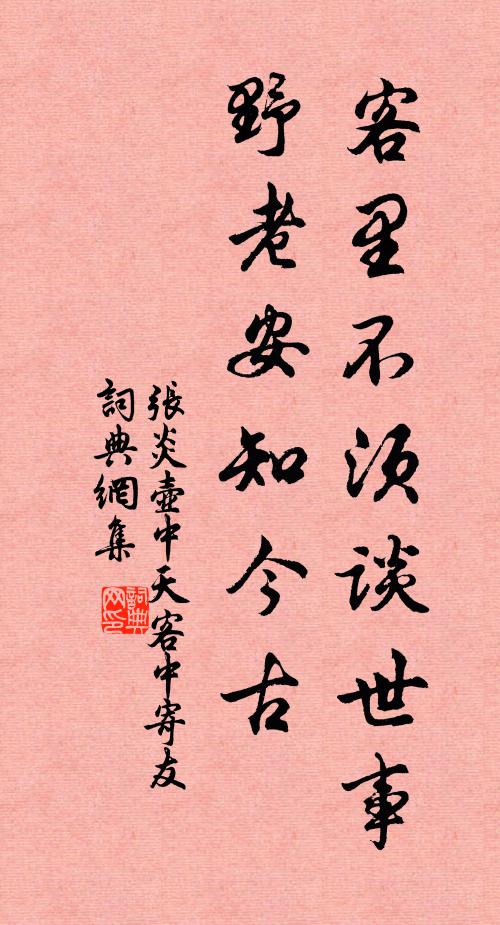 客里不须谈世事
野老安知今古
張炎壺中天客中寄友
詞典網集
詞典网印